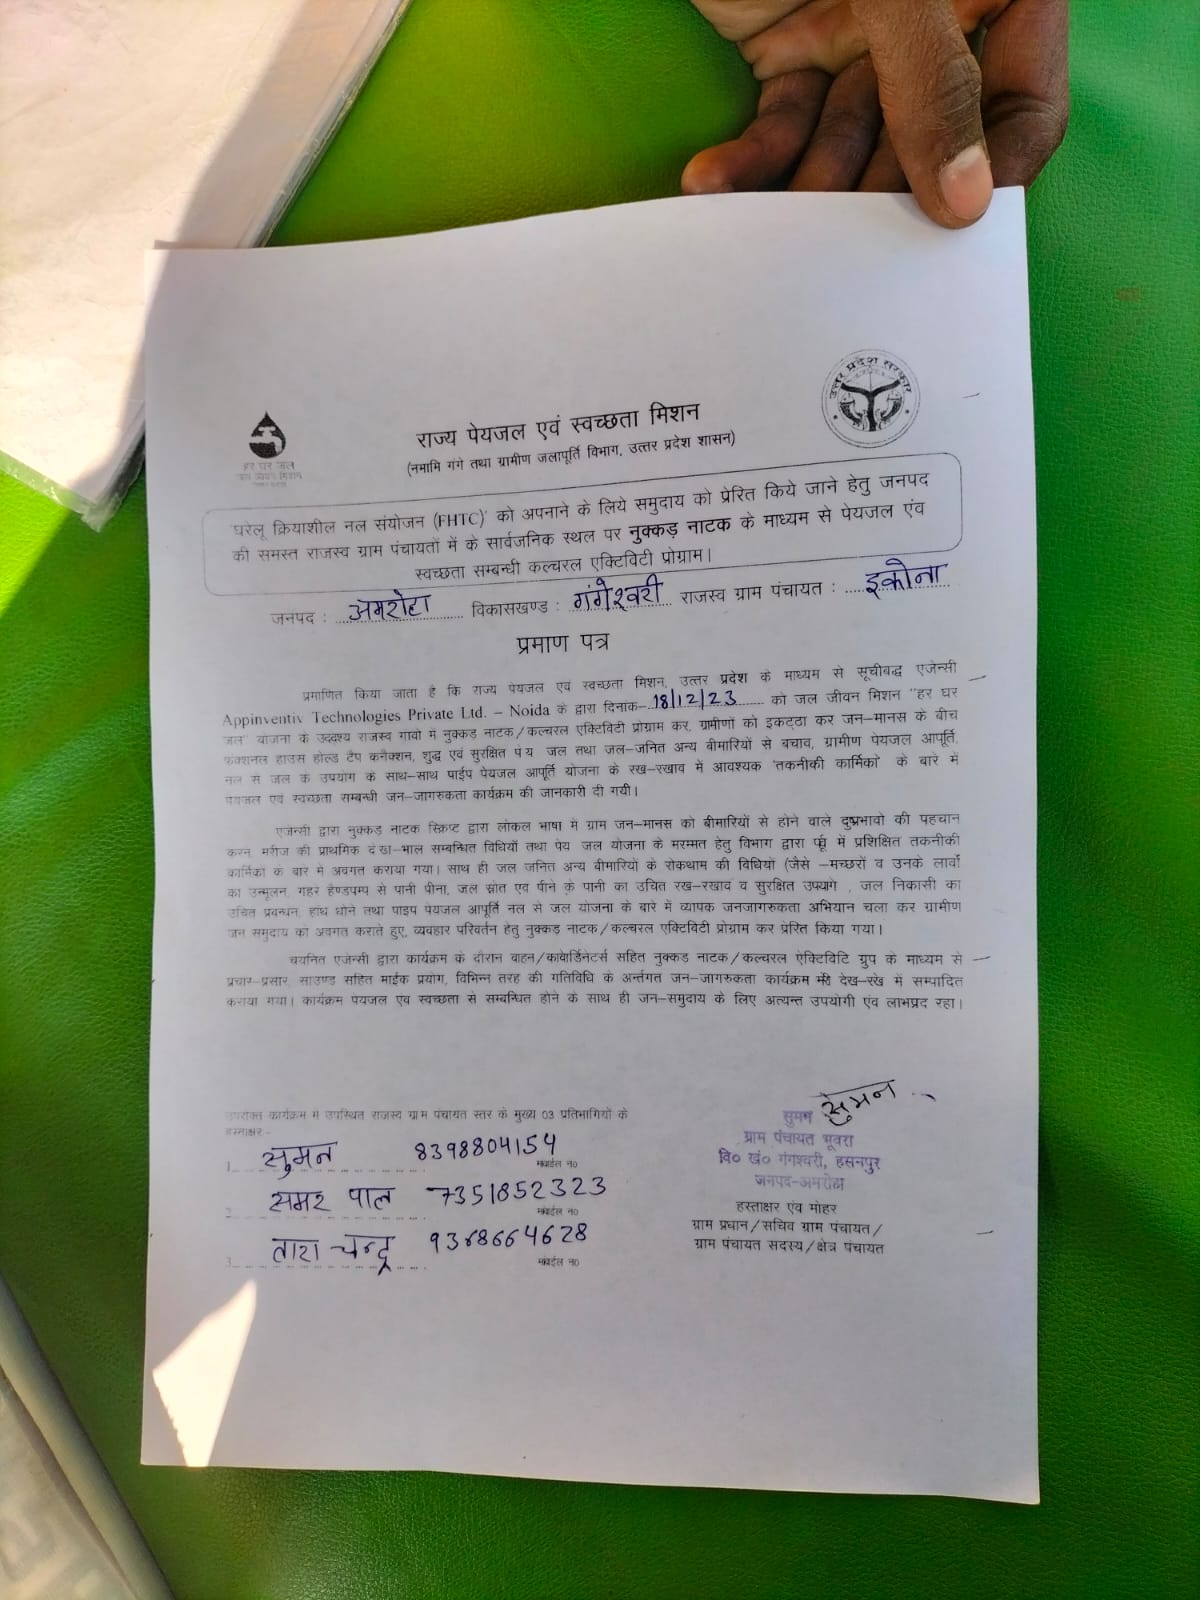 उत्तर प्रदेश सरकार
हर घर जल
जल जीवन मिशन
राज्य पेयजल एवं स्वच्छता मिशन
(नमामि गंगे तथा ग्रामीण जलापूर्ति विभाग, उत्तर प्रदेश शासन)
'घरेलू क्रियाशील नल संयोजन (FHTC)' को अपनाने के लिये समुदाय को प्रेरित किये जाने हेतु जनपद
की समस्त राजस्व ग्राम पंचायतों में के सार्वजनिक स्थल पर नुक्कड़ नाटक के माध्यम से पेयजल एंव
स्वच्छता सम्बन्धी कल्चरल एक्टिविटी प्रोग्राम।
जनपद : अमरोहा विकासखण्ड : गंगेश्वरी राजस्व ग्राम पंचायत : इकोना
प्रमाण पत्र
प्रमाणित किया जाता है कि राज्य पेयजल एवं स्वच्छता मिशन, उत्तर प्रदेश के माध्यम से सूचीबद्ध एजेन्सी
Appinventiv Technologies Private Ltd. – Noida के द्वारा दिनांक- 18/12/23 को जल जीवन मिशन "हर घर
जल" योजना के उददश्य राजस्व गावों में नुक्कड़ नाटक/कल्चरल एक्टिविटी प्रोग्राम कर, ग्रामीणों को इकट्ठा कर जन–मानस के बीच
फंक्शनल हाउस होल्ड टैप कनैक्शन, शुद्ध एवं सुरक्षित पेय जल तथा जल–जनित अन्य बीमारियों से बचाव, ग्रामीण पेयजल आपूर्ति,
नल से जल के उपयोग के साथ–साथ पाईप पेयजल आपूर्ति योजना के रख–रखाव में आवश्यक 'तकनीकी कार्मिको' के बारे में
पेयजल एवं स्वच्छता सम्बन्धी जन–जागरुकता कार्यक्रम की जानकारी दी गयी।
एजेन्सी द्वारा नुक्कड़ नाटक स्क्रिप्ट द्वारा लोकल भाषा में ग्राम जन–मानस को बीमारियों से होने वाले दुष्प्रभावो की पहचान
करन, मरीज की प्राथमिक देखा–भाल सम्बन्धित विधियों तथा पेय जल योजना के मरम्मत हेतु विभाग द्वारा में प्रशिक्षित तकनीकी
कार्मिकों के बारे में अवगत कराया गया। साथ ही जल जनित अन्य बीमारियों के रोकथाम की विधियों (जैसे –मच्छरों व उनके लार्वा
का उन्मूलन, गहर हैण्डपम्प से पानी पीना, जल स्रोत एवं पीने के पानी का उचित रख–रखाव व सुरक्षित उपयोग , जल निकासी का
उचित प्रबन्धन, हाथ धोने तथा पाइप पेयजल आपूर्ति नल से जल योजना के बारे में व्यापक जनजागरुकता अभियान चला कर ग्रामीण
जन समुदाय का अवगत कराते हुए, व्यवहार परिवर्तन हेतु नुक्कड़ नाटक/कल्चरल एक्टिविटी प्रोग्राम कर प्रेरित किया गया।
चयनित एजेन्सी द्वारा कार्यक्रम के दौरान वाहन/कार्वोर्डिनेटर्स सहित नुक्कड़ नाटक/कल्चरल ऐक्टिविटि ग्रुप के माध्यम से
प्रचार–प्रसार, साउण्ड सहित माईक प्रयोग, विभिन्न तरह की गतिविधि के अर्न्तगत जन–जागरुकता कार्यक्रम देख–रेख में सम्पादित
कराया गया। कार्यक्रम पेयजल एवं स्वच्छता से सम्बन्धित होने के साथ ही जन–समुदाय के लिए अत्यन्त उपयोगी एंव लाभप्रद रहा।
उपरोक्त कार्यक्रम में उपस्थित राजस्व ग्राम पंचायत स्तर के मुख्य 03 प्रतिभागियों के
हस्ताक्षर -
1. सुमन 8398804154
मोबाईल न0
2. समर पाल 7351852323
मोबाईल न0
3. तारा चन्द्र 9368664628
मोबाईल न0
सुमन
सुमन
ग्राम पंचायत भूवरा
वि० खं० गंगश्वरी, हसनपुर
जनपद-अमरोहा
हस्ताक्षर एंव मोहर
ग्राम प्रधान/सचिव ग्राम पंचायत/
ग्राम पंचायत सदस्य/क्षेत्र पंचायत